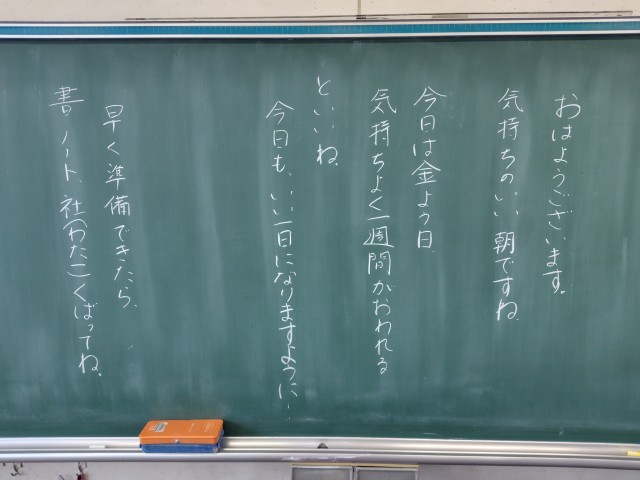 おはようございます。
気持ちのいい朝ですね。
今日は金よう日。
気持ちよく一週間がおわれる
といいね。
今日も、いい一日になりますように…
早く準備できたら、
書ノート、社(わたこ)くばってね。